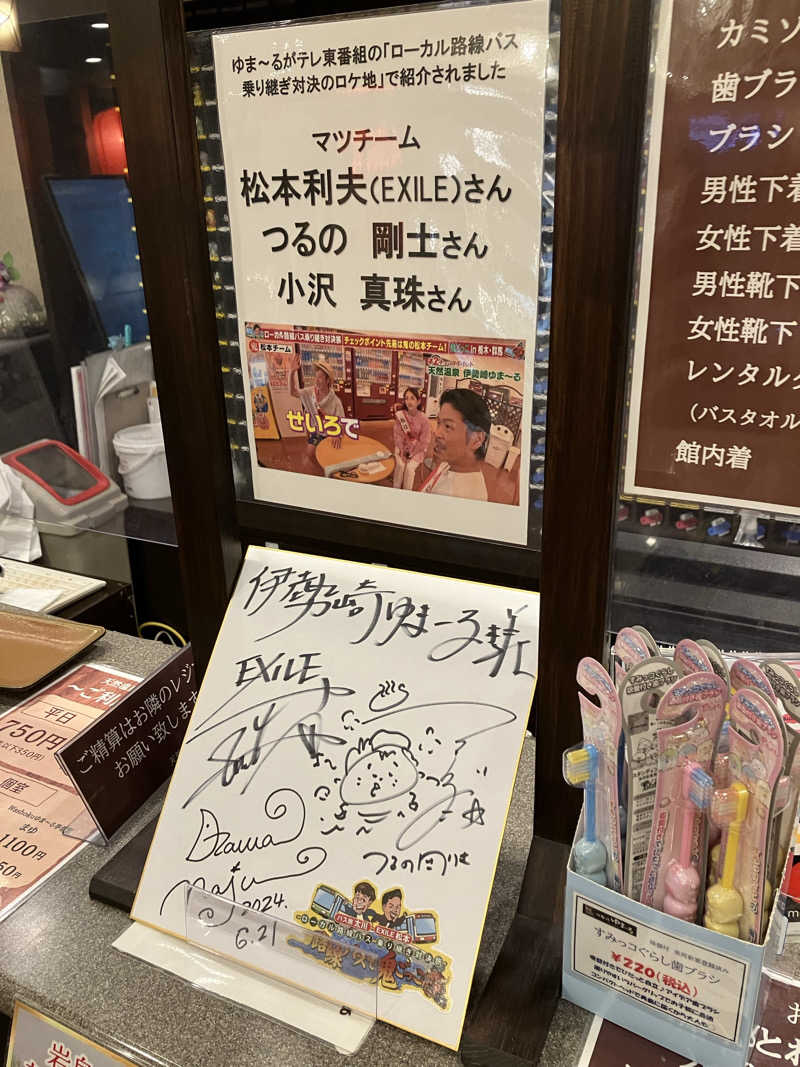 ゆま～るがテレ東番組の「ローカル路線バス
乗り継ぎ対決のロケ地」で紹介されました
マツチーム
松本利夫(EXILE)さん
つるの 剛士さん
小沢 真珠さん
ローカル路線バス乗り継ぎ対決旅
チェックポイント先着は鬼の松本チーム!
in 栃木・群馬
松本チーム
天然温泉 伊勢崎ゆま～る
せいろで
伊勢崎ゆまーる様
EXILE
Ozawa
Maju
2024.
6.21
つるの剛士
バス旅
EXILE松本
ローカル路線バス乗り継ぎ対決旅
カミソ
歯ブラ
ブラシ
男性下着
女性下着
男性靴下
女性靴下
レンタル
(バスタオル
館内着
平日
750円
個室
1100円
ご精算はお隣のレジ
お願い致します
すみっコぐらし歯ブラシ
¥220(税込)